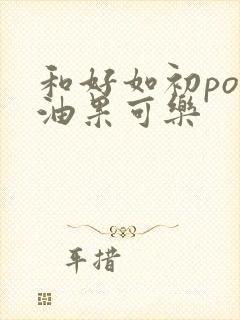 和好如初po
油果可樂
耳措